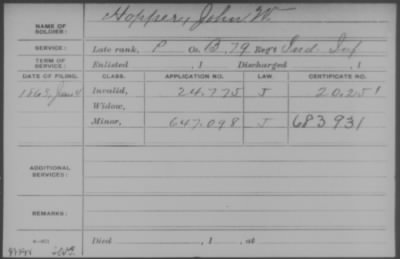 NAME OF SOLDIER: Hopper, John W.
SERVICE: Late rank, P Co. B, 79 Reg't Ind Inf
TERM OF SERVICE: Enlisted , 1 Discharged , 1
DATE OF FILING. CLASS. APPLICATION NO. LAW. CERTIFICATE NO.
1863, June 4 Invalid, 24.775 J 20.251
Widow,
Minor, 647.098 J 683931
ADDITIONAL SERVICES:
REMARKS:
Died , 1 , at